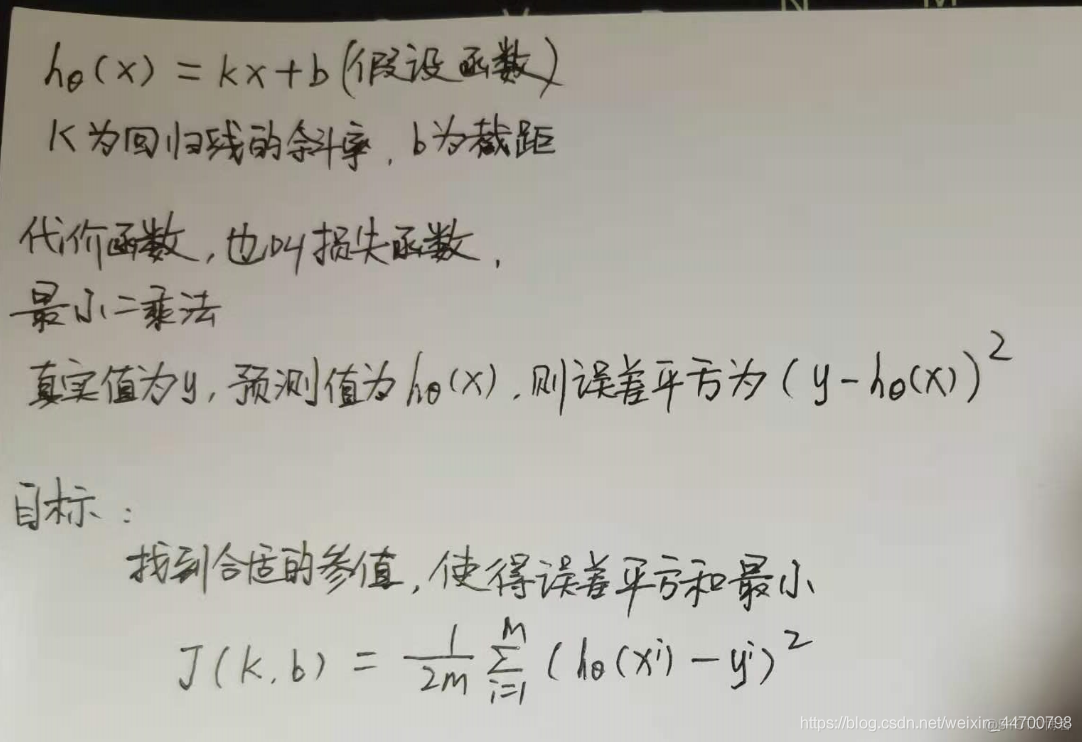 hθ(x) = kx+b(假设函数)
K为回归线的斜率,b为截距
代价函数,也叫损失函数,
最小二乘法
真实值为y,预测值为hθ(x),则误差平方为(y-hθ(x))²
目标:
找到合适的参值,使得误差平方和最小
J(k,b) = 1/2m Σ_{i=1}^{m} (hθ(xⁱ)-yⁱ)²
https://blog.csdn.net/weixin_44700798